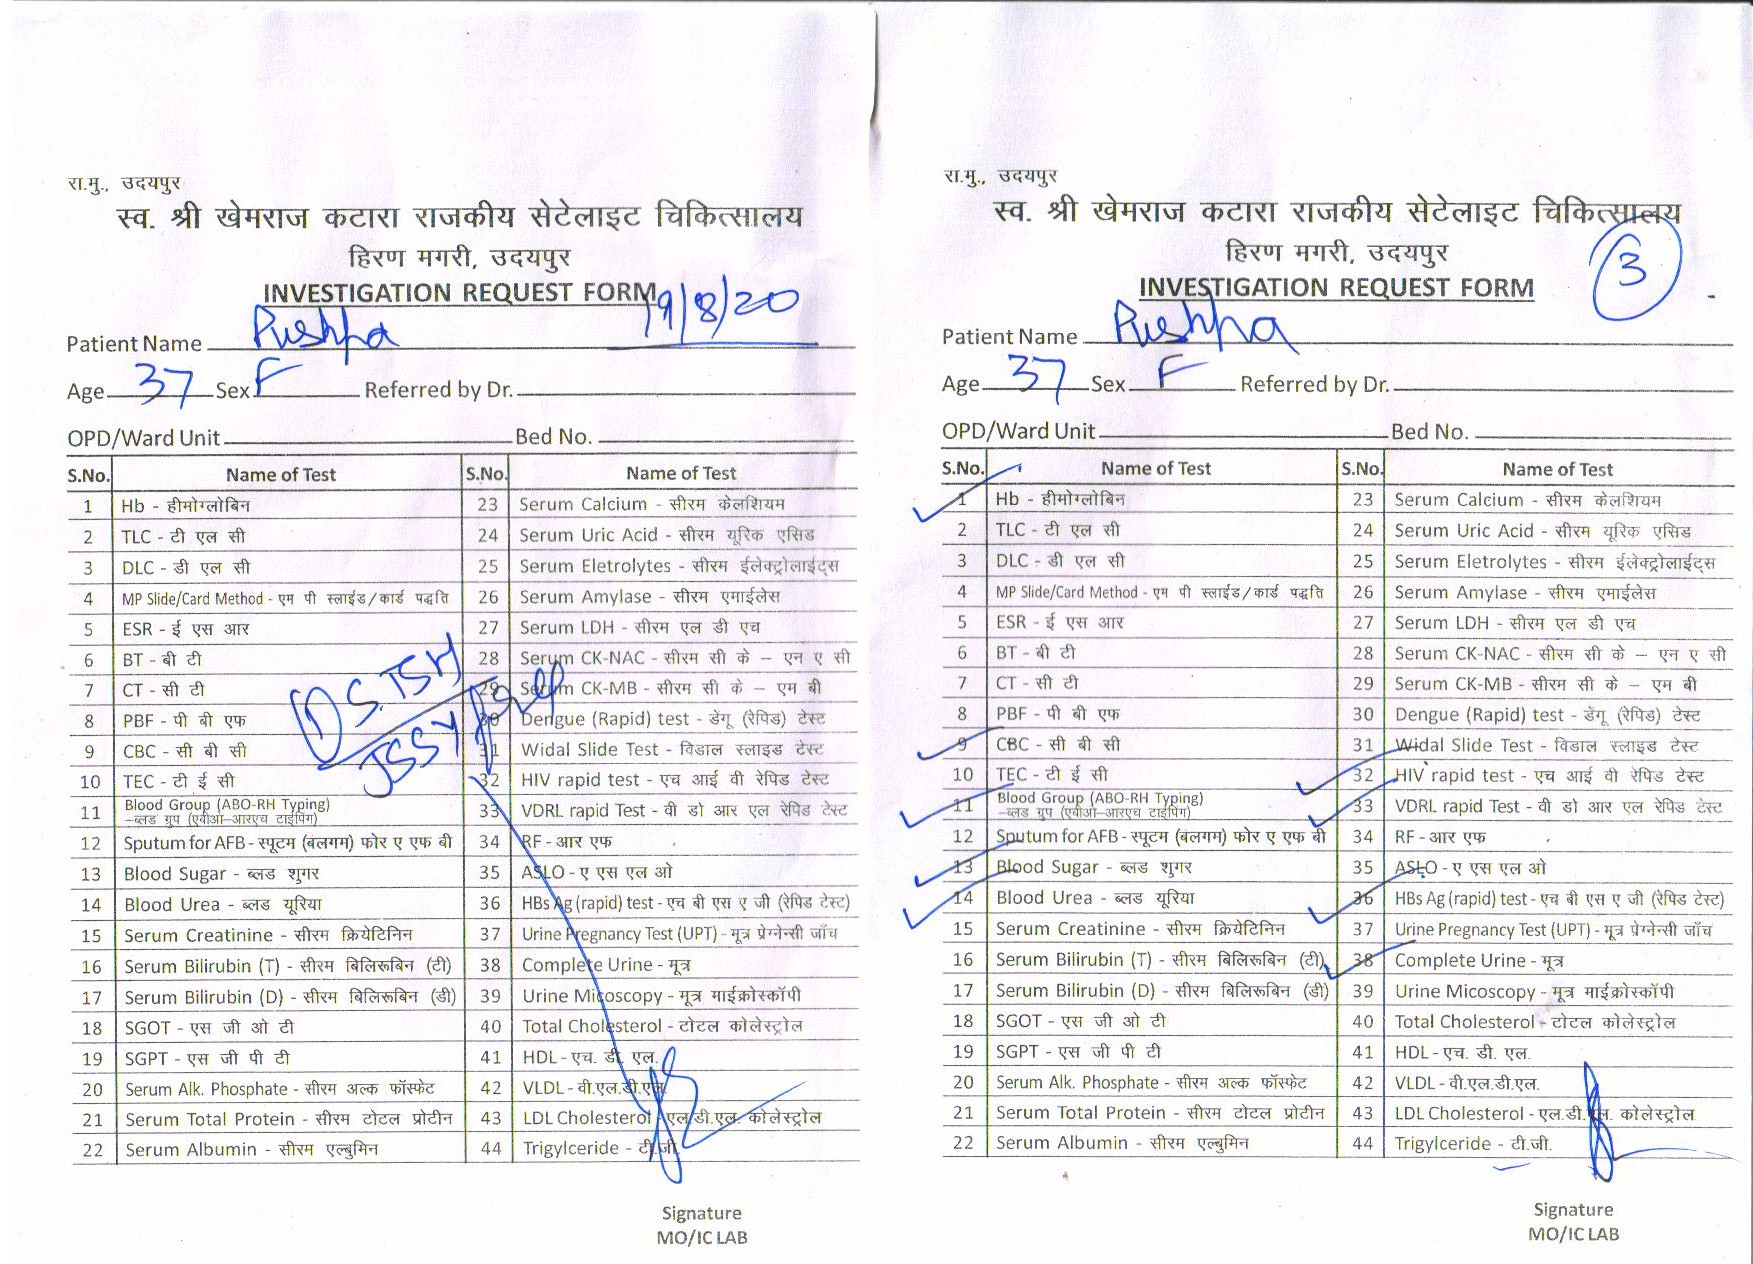 रा.मु., उदयपुर
स्व. श्री खेमराज कटारा राजकीय सेटेलाइट चिकित्सालय
हिरण मगरी, उदयपुर
INVESTIGATION REQUEST FORM
19/8/20
Patient Name Pushpa
Age 37 Sex F Referred by Dr.
OPD/Ward Unit Bed No.
S.No. Name of Test S.No. Name of Test
1 Hb - हीमोग्लोबिन 23 Serum Calcium - सीरम केलशियम
2 TLC - टी एल सी 24 Serum Uric Acid - सीरम यूरिक एसिड
3 DLC - डी एल सी 25 Serum Eletrolytes - सीरम ईलेक्ट्रोलाईट्स
4 MP Slide/Card Method - एम पी स्लाईड/कार्ड पद्धति 26 Serum Amylase - सीरम एमाईलेस
5 ESR - ई एस आर 27 Serum LDH - सीरम एल डी एच
6 BT - बी टी 28 Serum CK-NAC - सीरम सी के – एन ए सी
7 CT - सी टी 29 Serum CK-MB - सीरम सी के – एम बी
8 PBF - पी बी एफ 30 Dengue (Rapid) test - डेंगू (रेपिड) टेस्ट
9 CBC - सी बी सी 31 Widal Slide Test - विडाल स्लाइड टेस्ट
10 TEC - टी ई सी 32 HIV rapid test - एच आई वी रेपिड टेस्ट
11 Blood Group (ABO-RH Typing) 33 VDRL rapid Test - वी डो आर एल रेपिड टेस्ट
–ब्लड ग्रुप (एबीओ–आरएच टाईपिंग)
12 Sputum for AFB - स्पूटम (बलगम) फोर ए एफ बी 34 RF - आर एफ
13 Blood Sugar - ब्लड शुगर 35 ASLO - ए एस एल ओ
14 Blood Urea - ब्लड यूरिया 36 HBs Ag (rapid) test - एच बी एस ए जी (रेपिड टेस्ट)
15 Serum Creatinine - सीरम क्रियेटिनिन 37 Urine Pregnancy Test (UPT) - मूत्र प्रेग्नेन्सी जाँच
16 Serum Bilirubin (T) - सीरम बिलिरूबिन (टी) 38 Complete Urine - मूत्र
17 Serum Bilirubin (D) - सीरम बिलिरूबिन (डी) 39 Urine Micoscopy - मूत्र माईक्रोस्कॉपी
18 SGOT - एस जी ओ टी 40 Total Cholesterol - टोटल कोलेस्ट्रोल
19 SGPT - एस जी पी टी 41 HDL - एच. डी. एल.
20 Serum Alk. Phosphate - सीरम अल्क फॉस्फेट 42 VLDL - वी.एल.डी.एल.
21 Serum Total Protein - सीरम टोटल प्रोटीन 43 LDL Cholesterol - एल.डी.एल. कोलेस्ट्रोल
22 Serum Albumin - सीरम एल्बुमिन 44 Trigylceride - टी.जी.
S.TSH
JSSY
Signature
MO/IC LAB
रा.मु., उदयपुर
स्व. श्री खेमराज कटारा राजकीय सेटेलाइट चिकित्सालय
हिरण मगरी, उदयपुर
3
INVESTIGATION REQUEST FORM
Patient Name Pushpa
Age 37 Sex F Referred by Dr.
OPD/Ward Unit Bed No.
S.No. Name of Test S.No. Name of Test
1 Hb - हीमोग्लोबिन 23 Serum Calcium - सीरम केलशियम
2 TLC - टी एल सी 24 Serum Uric Acid - सीरम यूरिक एसिड
3 DLC - डी एल सी 25 Serum Eletrolytes - सीरम ईलेक्ट्रोलाईट्स
4 MP Slide/Card Method - एम पी स्लाईड/कार्ड पद्धति 26 Serum Amylase - सीरम एमाईलेस
5 ESR - ई एस आर 27 Serum LDH - सीरम एल डी एच
6 BT - बी टी 28 Serum CK-NAC - सीरम सी के – एन ए सी
7 CT - सी टी 29 Serum CK-MB - सीरम सी के – एम बी
8 PBF - पी बी एफ 30 Dengue (Rapid) test - डेंगू (रेपिड) टेस्ट
9 CBC - सी बी सी 31 Widal Slide Test - विडाल स्लाइड टेस्ट
10 TEC - टी ई सी 32 HIV rapid test - एच आई वी रेपिड टेस्ट
11 Blood Group (ABO-RH Typing) 33 VDRL rapid Test - वी डो आर एल रेपिड टेस्ट
–ब्लड ग्रुप (एबीओ–आरएच टाईपिंग)
12 Sputum for AFB - स्पूटम (बलगम) फोर ए एफ बी 34 RF - आर एफ
13 Blood Sugar - ब्लड शुगर 35 ASLO - ए एस एल ओ
14 Blood Urea - ब्लड यूरिया 36 HBs Ag (rapid) test - एच बी एस ए जी (रेपिड टेस्ट)
15 Serum Creatinine - सीरम क्रियेटिनिन 37 Urine Pregnancy Test (UPT) - मूत्र प्रेग्नेन्सी जाँच
16 Serum Bilirubin (T) - सीरम बिलिरूबिन (टी) 38 Complete Urine - मूत्र
17 Serum Bilirubin (D) - सीरम बिलिरूबिन (डी) 39 Urine Micoscopy - मूत्र माईक्रोस्कॉपी
18 SGOT - एस जी ओ टी 40 Total Cholesterol - टोटल कोलेस्ट्रोल
19 SGPT - एस जी पी टी 41 HDL - एच. डी. एल.
20 Serum Alk. Phosphate - सीरम अल्क फॉस्फेट 42 VLDL - वी.एल.डी.एल.
21 Serum Total Protein - सीरम टोटल प्रोटीन 43 LDL Cholesterol - एल.डी.एल. कोलेस्ट्रोल
22 Serum Albumin - सीरम एल्बुमिन 44 Trigylceride - टी.जी.
Signature
MO/IC LAB